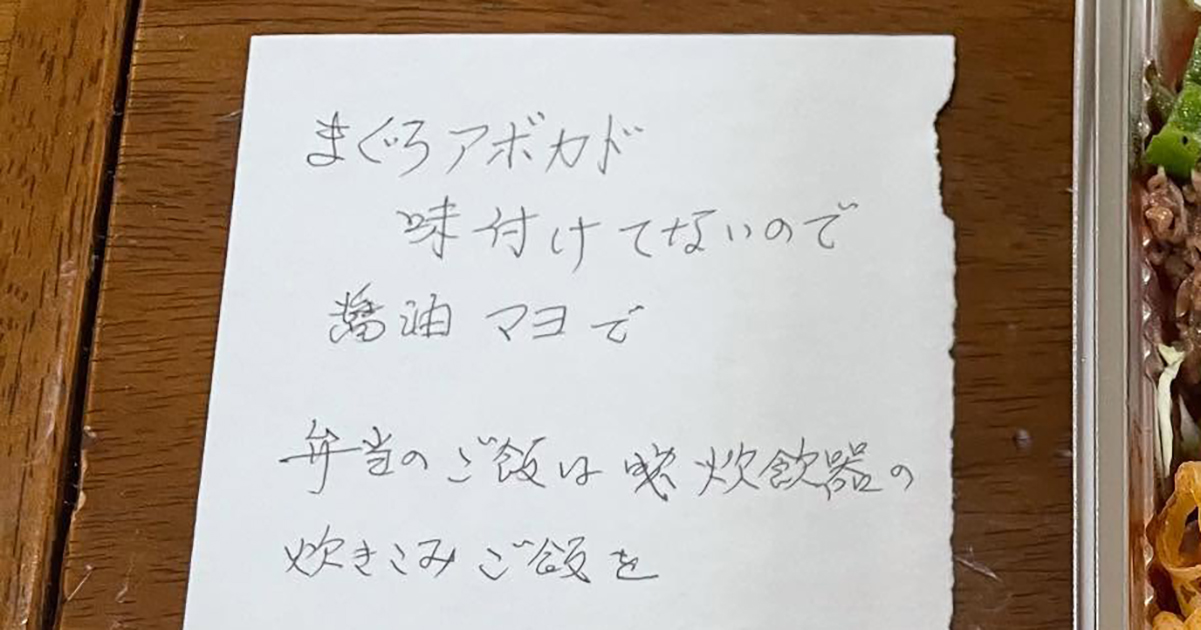 まぐろアボカド
味付けてないので
醤油 マヨで
弁当のご飯は 炊飲器の
炊きこみ ご飯を